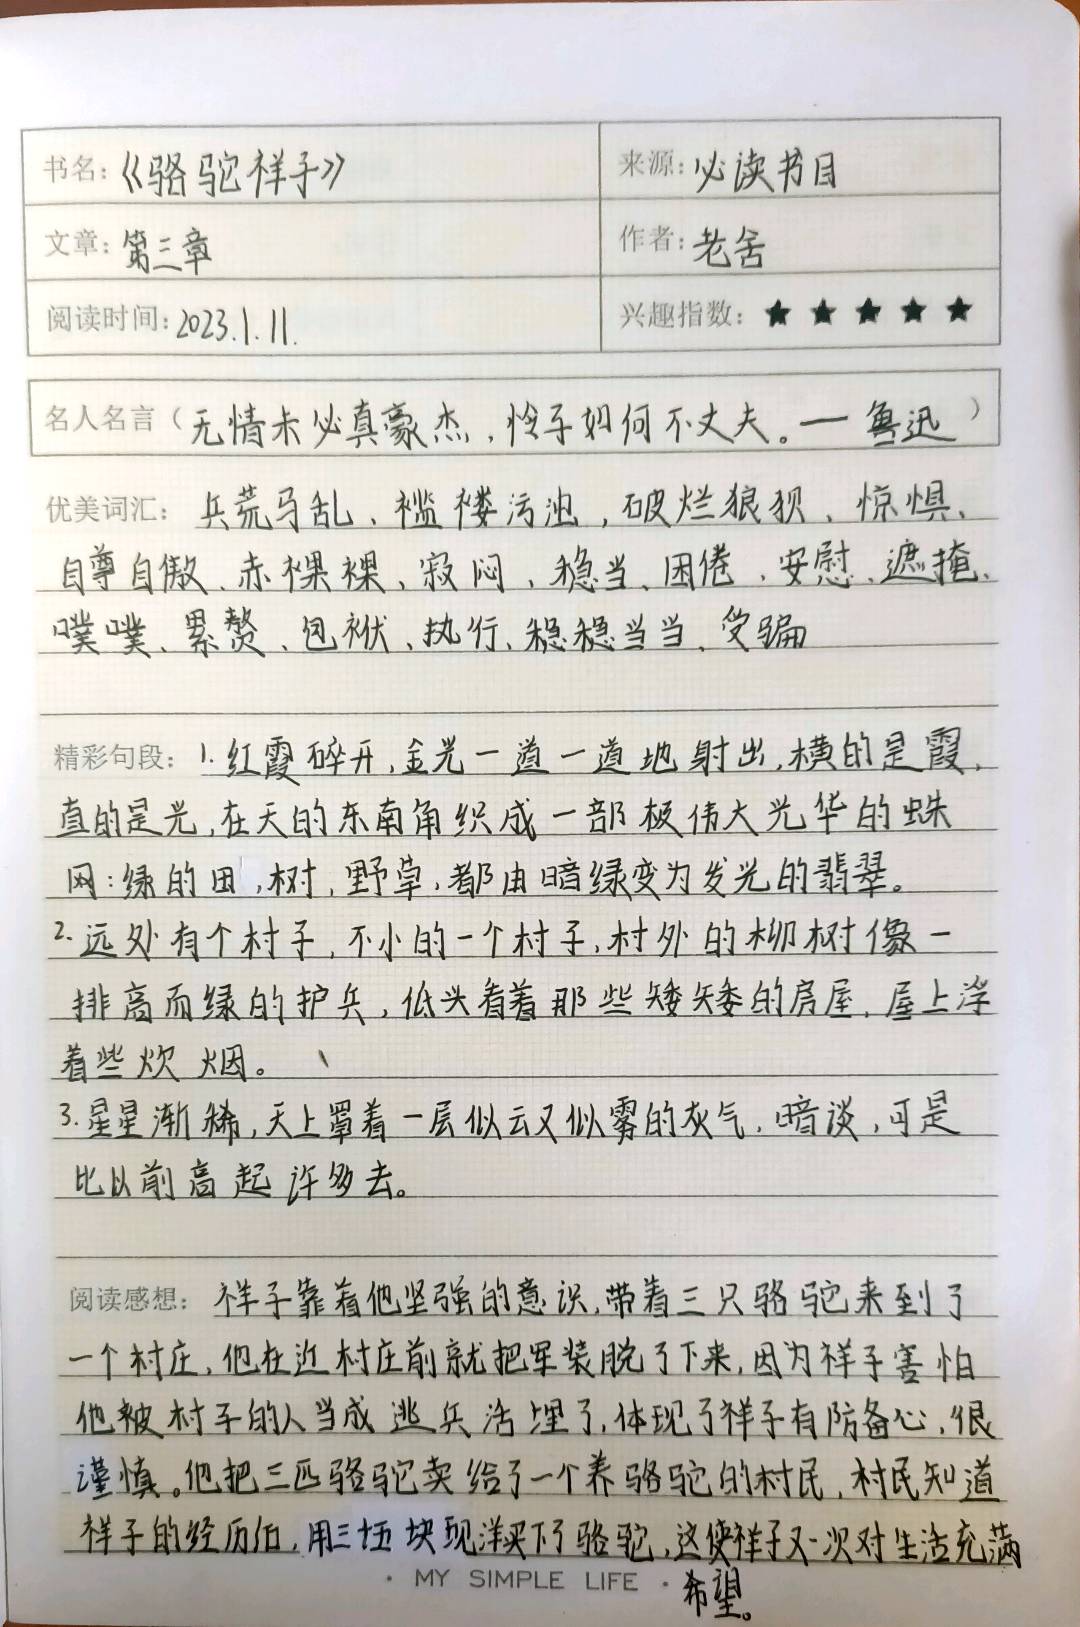 书名:《骆驼祥子》 来源:必读书目
文章:第三章 作者:老舍
阅读时间:2023.1.11. 兴趣指数:★★★★★
名人名言(无情未必真豪杰,怜子如何不丈夫。一鲁迅)
优美词汇:兵荒马乱、褴褛污浊,破烂狼狈、惊惧、
自尊自傲、赤裸裸、寂闷、稳当、困倦、安慰、遮掩、
噗噗、累赘、包袱、执行、稳稳当当、受骗
精彩句段:1.红霞碎开,金光一道一道地射出,横的是霞,
直的是光,在天的东南角织成一部极伟大光华的蛛
网:绿的田,树,野草,都由暗绿变为发光的翡翠。
2.远处有个村子,不小的一个村子,村外的柳树像一
排高而绿的护兵,低头看着那些矮矮的房屋,屋上浮
着些炊烟。
3.星星渐稀,天上罩着一层似云又似雾的灰气,暗谈,可是
比以前高起许多去。
阅读感想:祥子靠着他坚强的意识,带着三只骆驼来到了
一个村庄,他在近村庄前就把军装脱了下来,因为祥子害怕
他被村子的人当成逃兵活埋了,体现了祥子有防备心,很
谨慎。他把三匹骆驼卖给了一个养骆驼的村民,村民知道
祥子的经历后,用三十五块现洋买下了骆驼,这使祥子又一次对生活充满
希望。
· MY SIMPLE LIFE ·